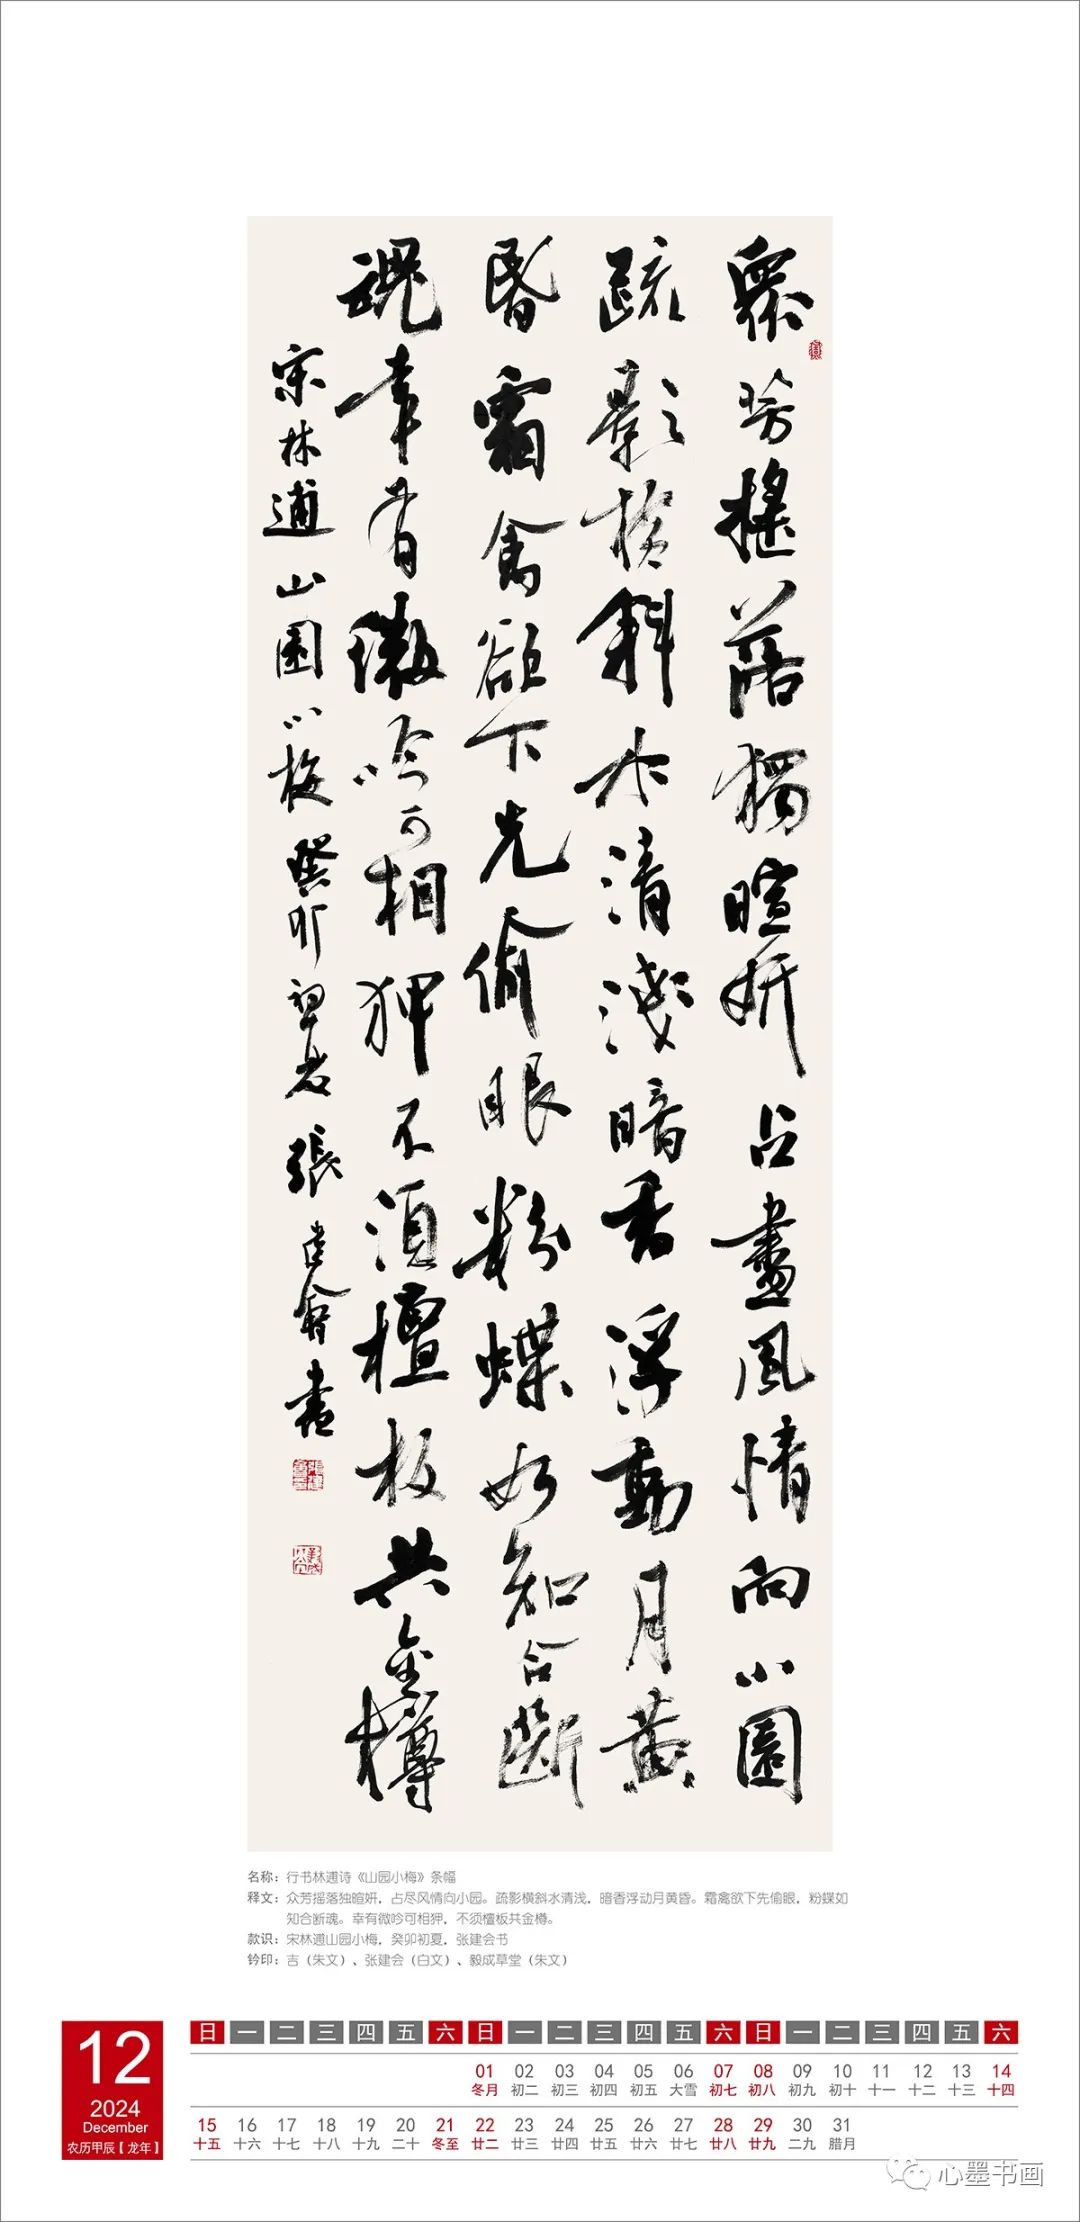 众芳摇落独暄妍占尽风情向小园
疏影横斜水清浅暗香浮动月黄
昏霜禽欲下先偷眼粉蝶如知合断
魂幸有微吟可相狎不须檀板共金樽
宋林逋山园小梅癸卯初夏張建會書
名称：行书林逋诗《山园小梅》条幅
释文：众芳摇落独暄妍，占尽风情向小园。疏影横斜水清浅，暗香浮动月黄昏。霜禽欲下先偷眼，粉蝶如
知合断魂。幸有微吟可相狎，不须檀板共金樽。
款识：宋林逋山园小梅，癸卯初夏，张建会书
钤印：吉（朱文）、张建会（白文）、毅成草堂（朱文）
12
2024
December
农历甲辰【龙年】
日 一 二 三 四 五 六 日 一 二 三 四 五 六 日 一 二 三 四 五 六
01 02 03 04 05 06 07 08 09 10 11 12 13 14
冬月 初二 初三 初四 初五 大雪 初七 初八 初九 初十 十一 十二 十三 十四
15 16 17 18 19 20 21 22 23 24 25 26 27 28 29 30 31
十五 十六 十七 十八 十九 二十 冬至 廿二 廿三 廿四 廿五 廿六 廿七 廿八 廿九 二九 腊月
心墨书画